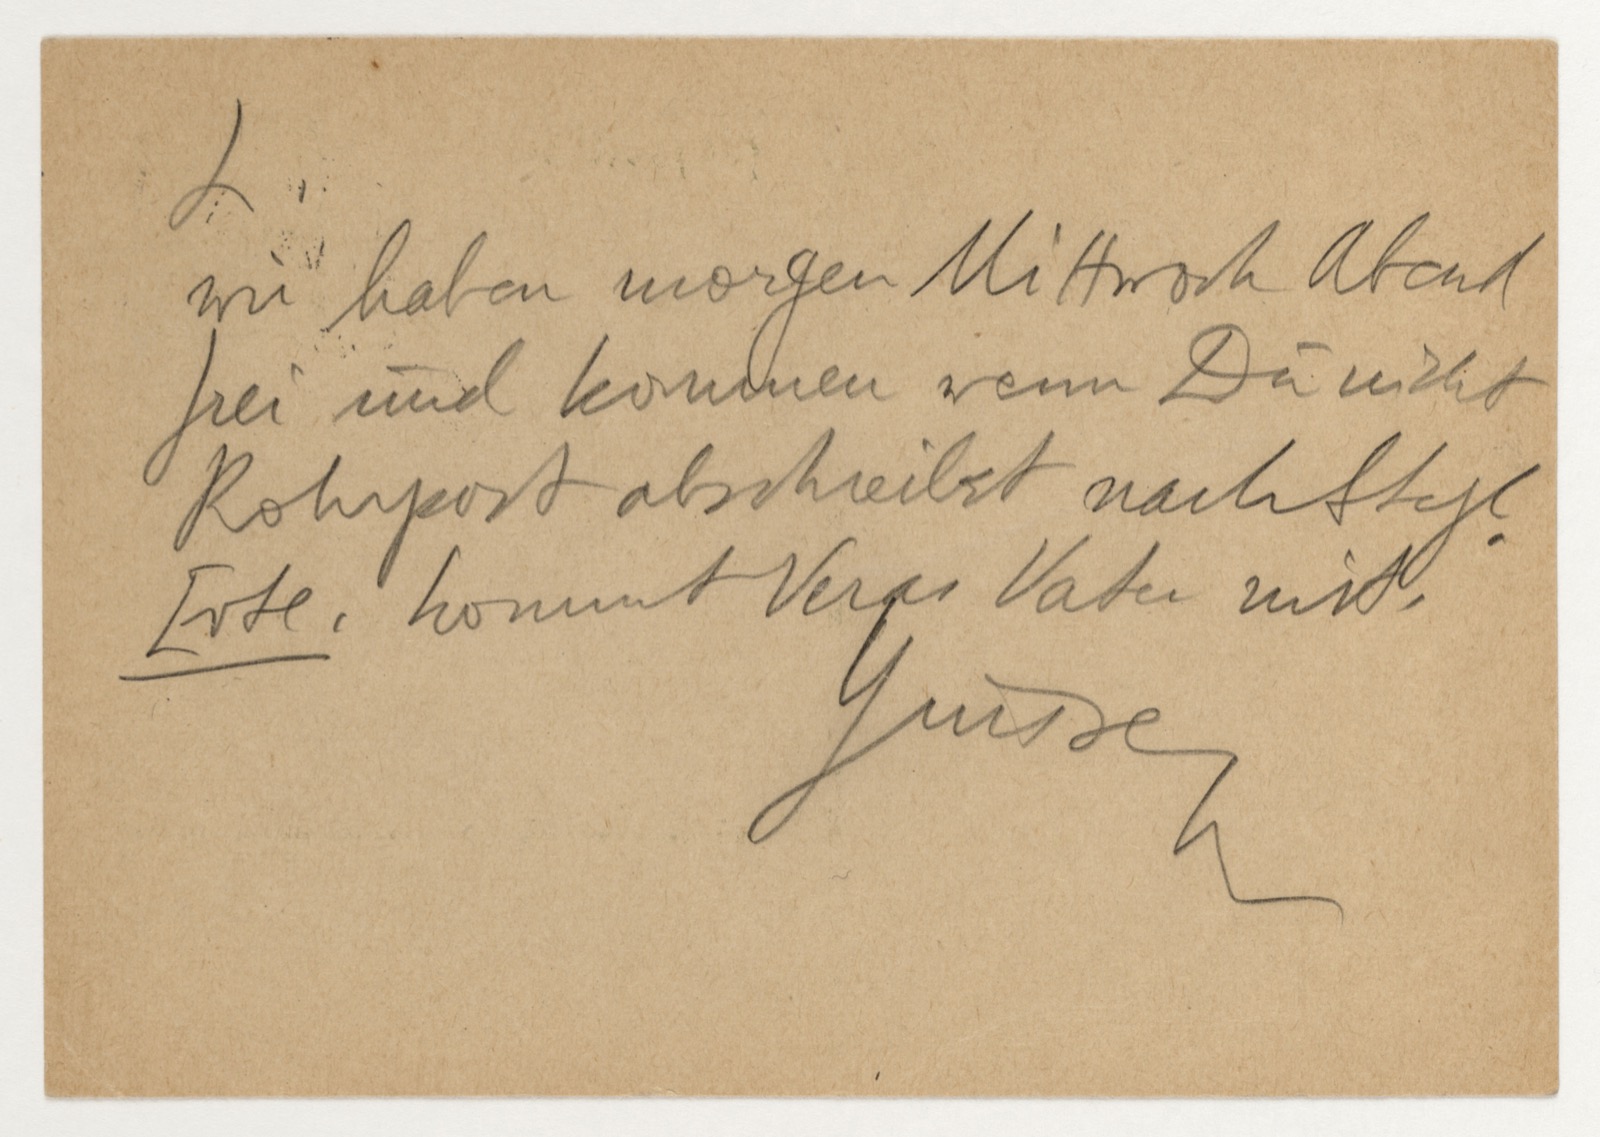 L
wir haben morgen Mittwoch Abend
frei und kommen wenn Du nicht
Rohrpost abschreibst nach Stgl.
Evte. kommt Veras Vater mit.
Grüsse